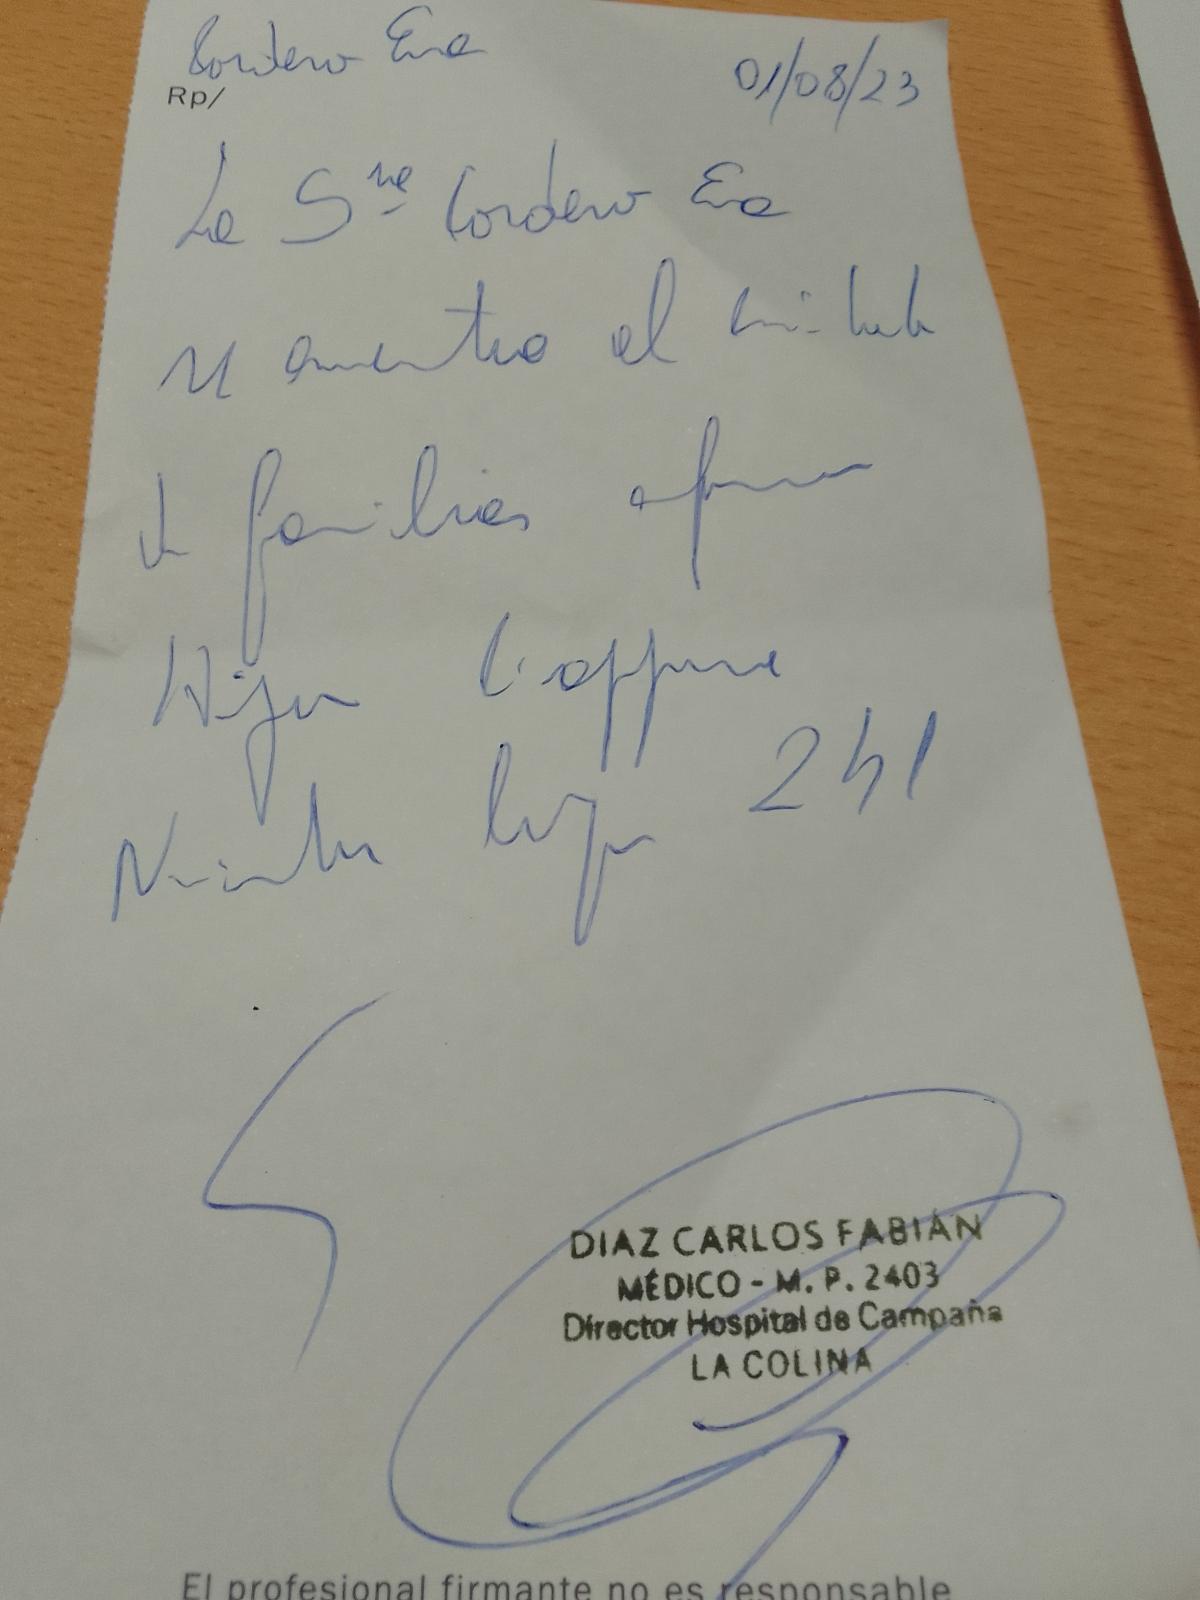 Cordero Eva
Rp/
01/08/23
La Sra Cordero Eva
se encuentra al cuidado
de familiar
Hijo
241
DIAZ CARLOS FABIÁN
MÉDICO - M. P. 2403
Director Hospital de Campaña
LA COLINA
El profesional firmante no es responsable